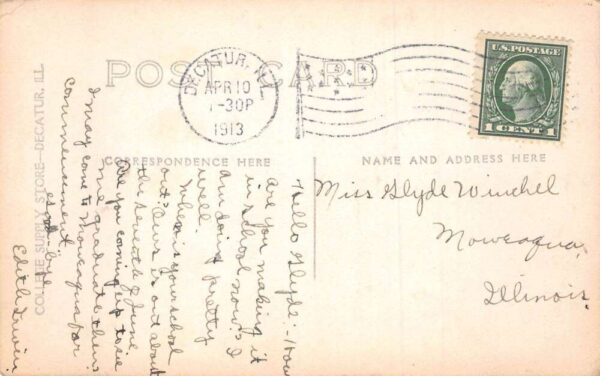 POST CARD
DECATUR, ILL.
APR 10
-30P
1913
U.S. POSTAGE
1 CENT 1
CORRESPONDENCE HERE
NAME AND ADDRESS HERE
Miss Glyde Winchel
Moweaqua,
Illinois.
Hello Glyde:- How
are you making it
in school now? I
am doing pretty
well.
When is your school
out? Ours is out about
the seventh of June.
Are you coming up to see
me graduate then?
I may come to Moweaqua for
commencement
good-bye
Edith Irwin
COLLEGE SUPPLY STORE—DECATUR, ILL.